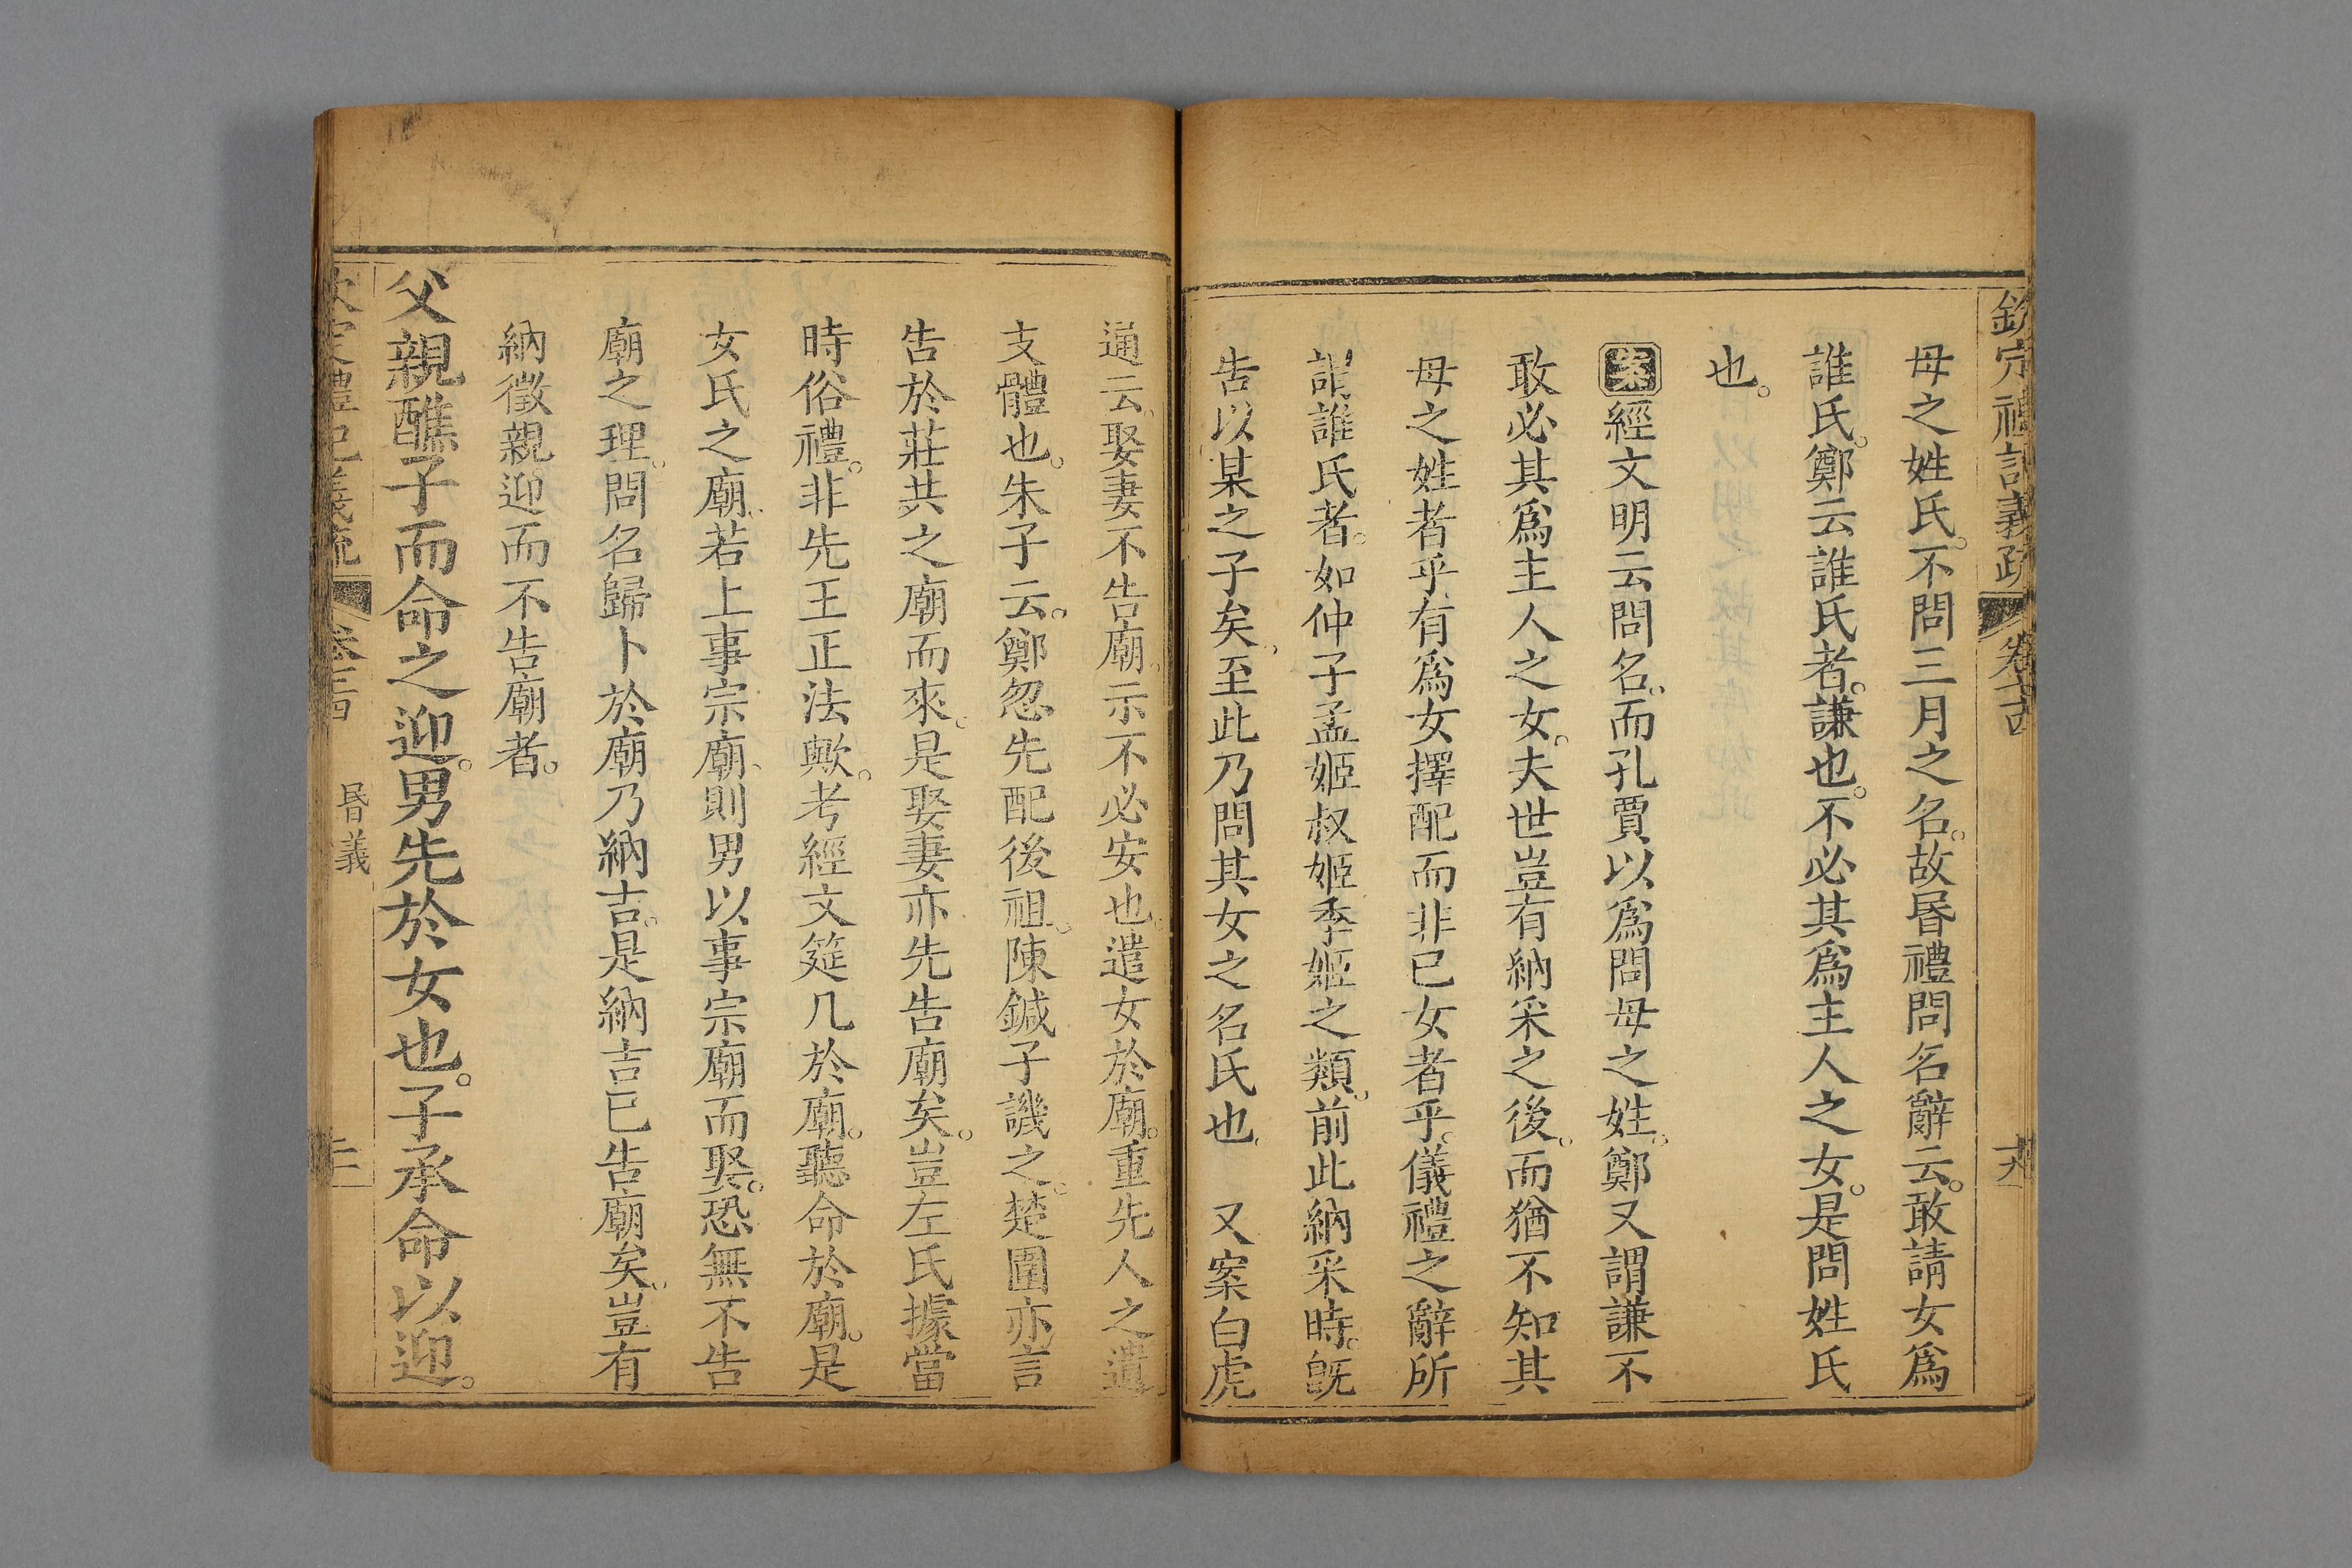 欽定禮記義疏 卷
母之姓氏。不問三月之名。故昬禮問名辭云。敢請女爲
誰氏。鄭云誰氏者。謙也。不必其爲主人之女。是問姓氏
也。
案經文明云問名。而孔賈以爲問母之姓。鄭又謂謙不
敢必其爲主人之女。夫世豈有納采之後。而猶不知其
母之姓者乎。有爲女擇配而非已女者乎。儀禮之辭所
謂誰氏者。如仲子孟姬叔姬季姬之類。前此納采時。旣
告以某之子矣。至此乃問其女之名氏也 又案白虎
通云。娶妻不告廟。示不必安也。遣女於廟。重先人之遺
支體也。朱子云。鄭忽先配後祖。陳鍼子譏之。楚圍亦言
告於莊共之廟而來。是娶妻亦先告廟矣。豈左氏據當
時俗禮。非先王正法歟。考經文筵几於廟。聽命於廟。是
女氏之廟。若上事宗廟、則男以事宗廟而娶。恐無不告
廟之理。問名歸卜於廟乃納吉。是納吉已告廟矣。豈有
納徵親迎而不告廟者。
父親醮子而命之迎。男先於女也。子承命以迎。
欽定禮記義疏 卷 昬義